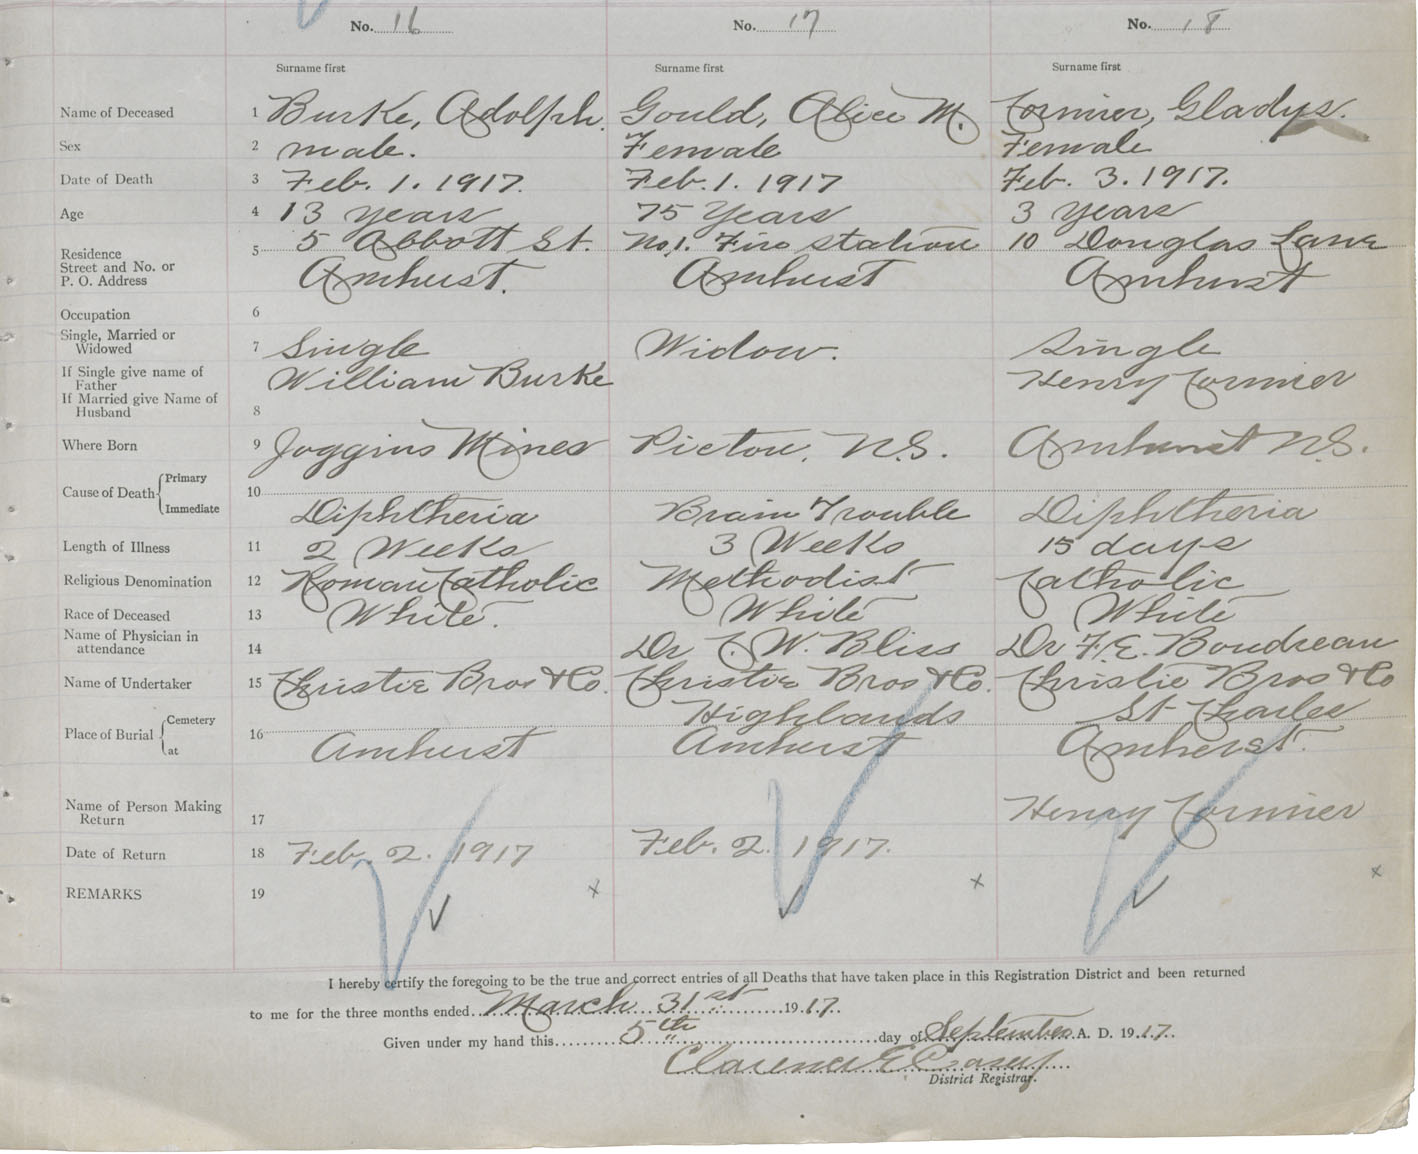 No. 16 No. 17 No. 18
Surname first Surname first Surname first
Name of Deceased 1 Burke, Adolph. Gould, Alice M. Cormier, Gladys.
Sex 2 male. Female Female
Date of Death 3 Feb. 1. 1917. Feb. 1. 1917 Feb. 3. 1917.
Age 4 13 years 75 Years 3 years
Residence 5 5 Abbott St. No 1. Fire station 10 Douglas Lane
Street and No. or
P. O. Address Amhurst. Amhurst Amhurst
Occupation 6
Single, Married or
Widowed 7 Single Widow. Single
If Single give name of
Father William Burke Henry Cormier
If Married give Name of
Husband 8
Where Born 9 Joggins Mines Pictou, N.S. Amhurst N.S.
Cause of Death Primary 10
Immediate Diphtheria Brain Trouble Diphtheria
Length of Illness 11 2 Weeks 3 Weeks 15 days
Religious Denomination 12 Roman Catholic Methodist Catholic
Race of Deceased 13 White. White White
Name of Physician in
attendance 14 Dr C. W. Bliss Dr F. E. Boudreau
Name of Undertaker 15 Christie Bros & Co. Christie Bros & Co. Christie Bros & Co
Place of Burial Cemetery 16 Highlands St Charles
at Amhurst Amhurst Amherst.
Name of Person Making
Return 17 Henry Cormier
Date of Return 18 Feb. 2. 1917 Feb. 2. 1917.
REMARKS 19 x x x
I hereby certify the foregoing to be the true and correct entries of all Deaths that have taken place in this Registration District and been returned
to me for the three months ended March 31st 1917.
Given under my hand this 5th day of September A. D. 1917.
Clarence E Casey
District Registrar.